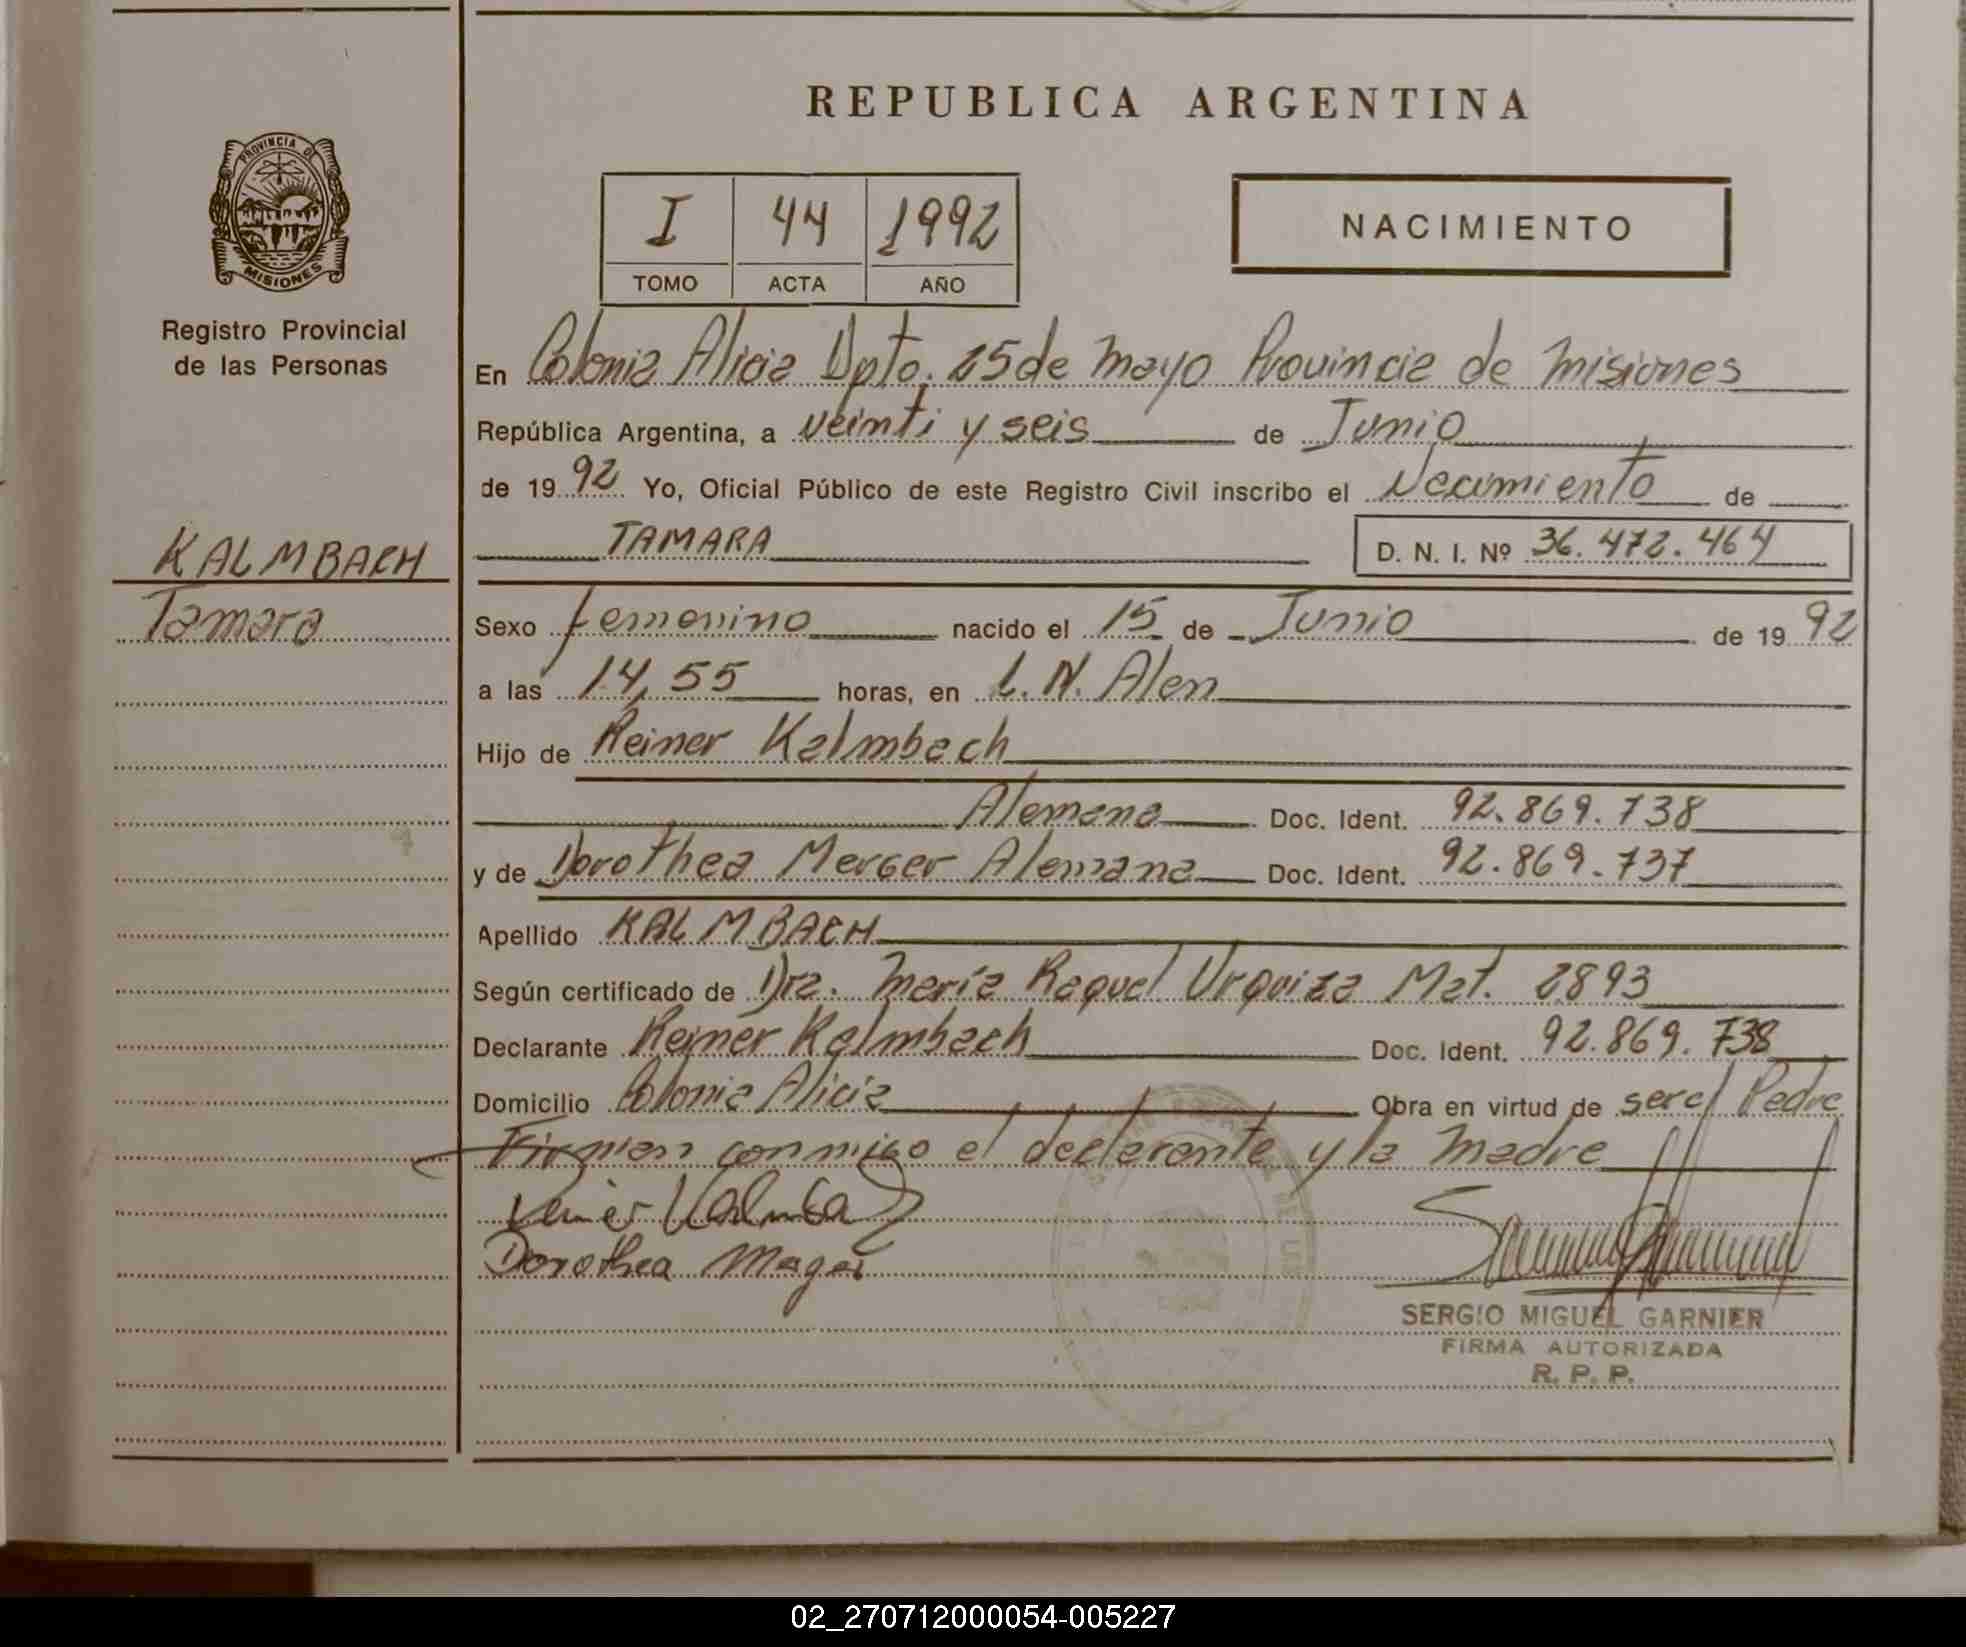 REPUBLICA ARGENTINA
PROVINCIA DE
MISIONES
Registro Provincial
de las Personas
I 44 1992
TOMO ACTA AÑO
NACIMIENTO
En Colonia Alicia Dpto. 25 de Mayo Provincia de Misiones
República Argentina, a veinti y seis de Junio
de 1992 Yo, Oficial Público de este Registro Civil inscribo el Nacimiento de
TAMARA D. N. I. Nº 36.472.464
KALMBACH
Tamara
Sexo femenino nacido el 15 de Junio de 1992
a las 14,55 horas, en L. N. Alen
Hijo de Reiner Kalmbach
Alemana Doc. Ident. 92.869.738
y de Dorothea Merger Alemana Doc. Ident. 92.869.737
Apellido KALMBACH
Según certificado de Dra. María Raquel Urquiza Mat. 2893
Declarante Reiner Kalmbach Doc. Ident. 92.869.738
Domicilio Colonia Alicia Obra en virtud de ser el Padre
Firman conmigo el declarante y la Madre
Reiner Kalmbach
Dorothea Mager
SERGIO MIGUEL GARNIER
FIRMA AUTORIZADA
R. P. P.
02_270712000054-005227